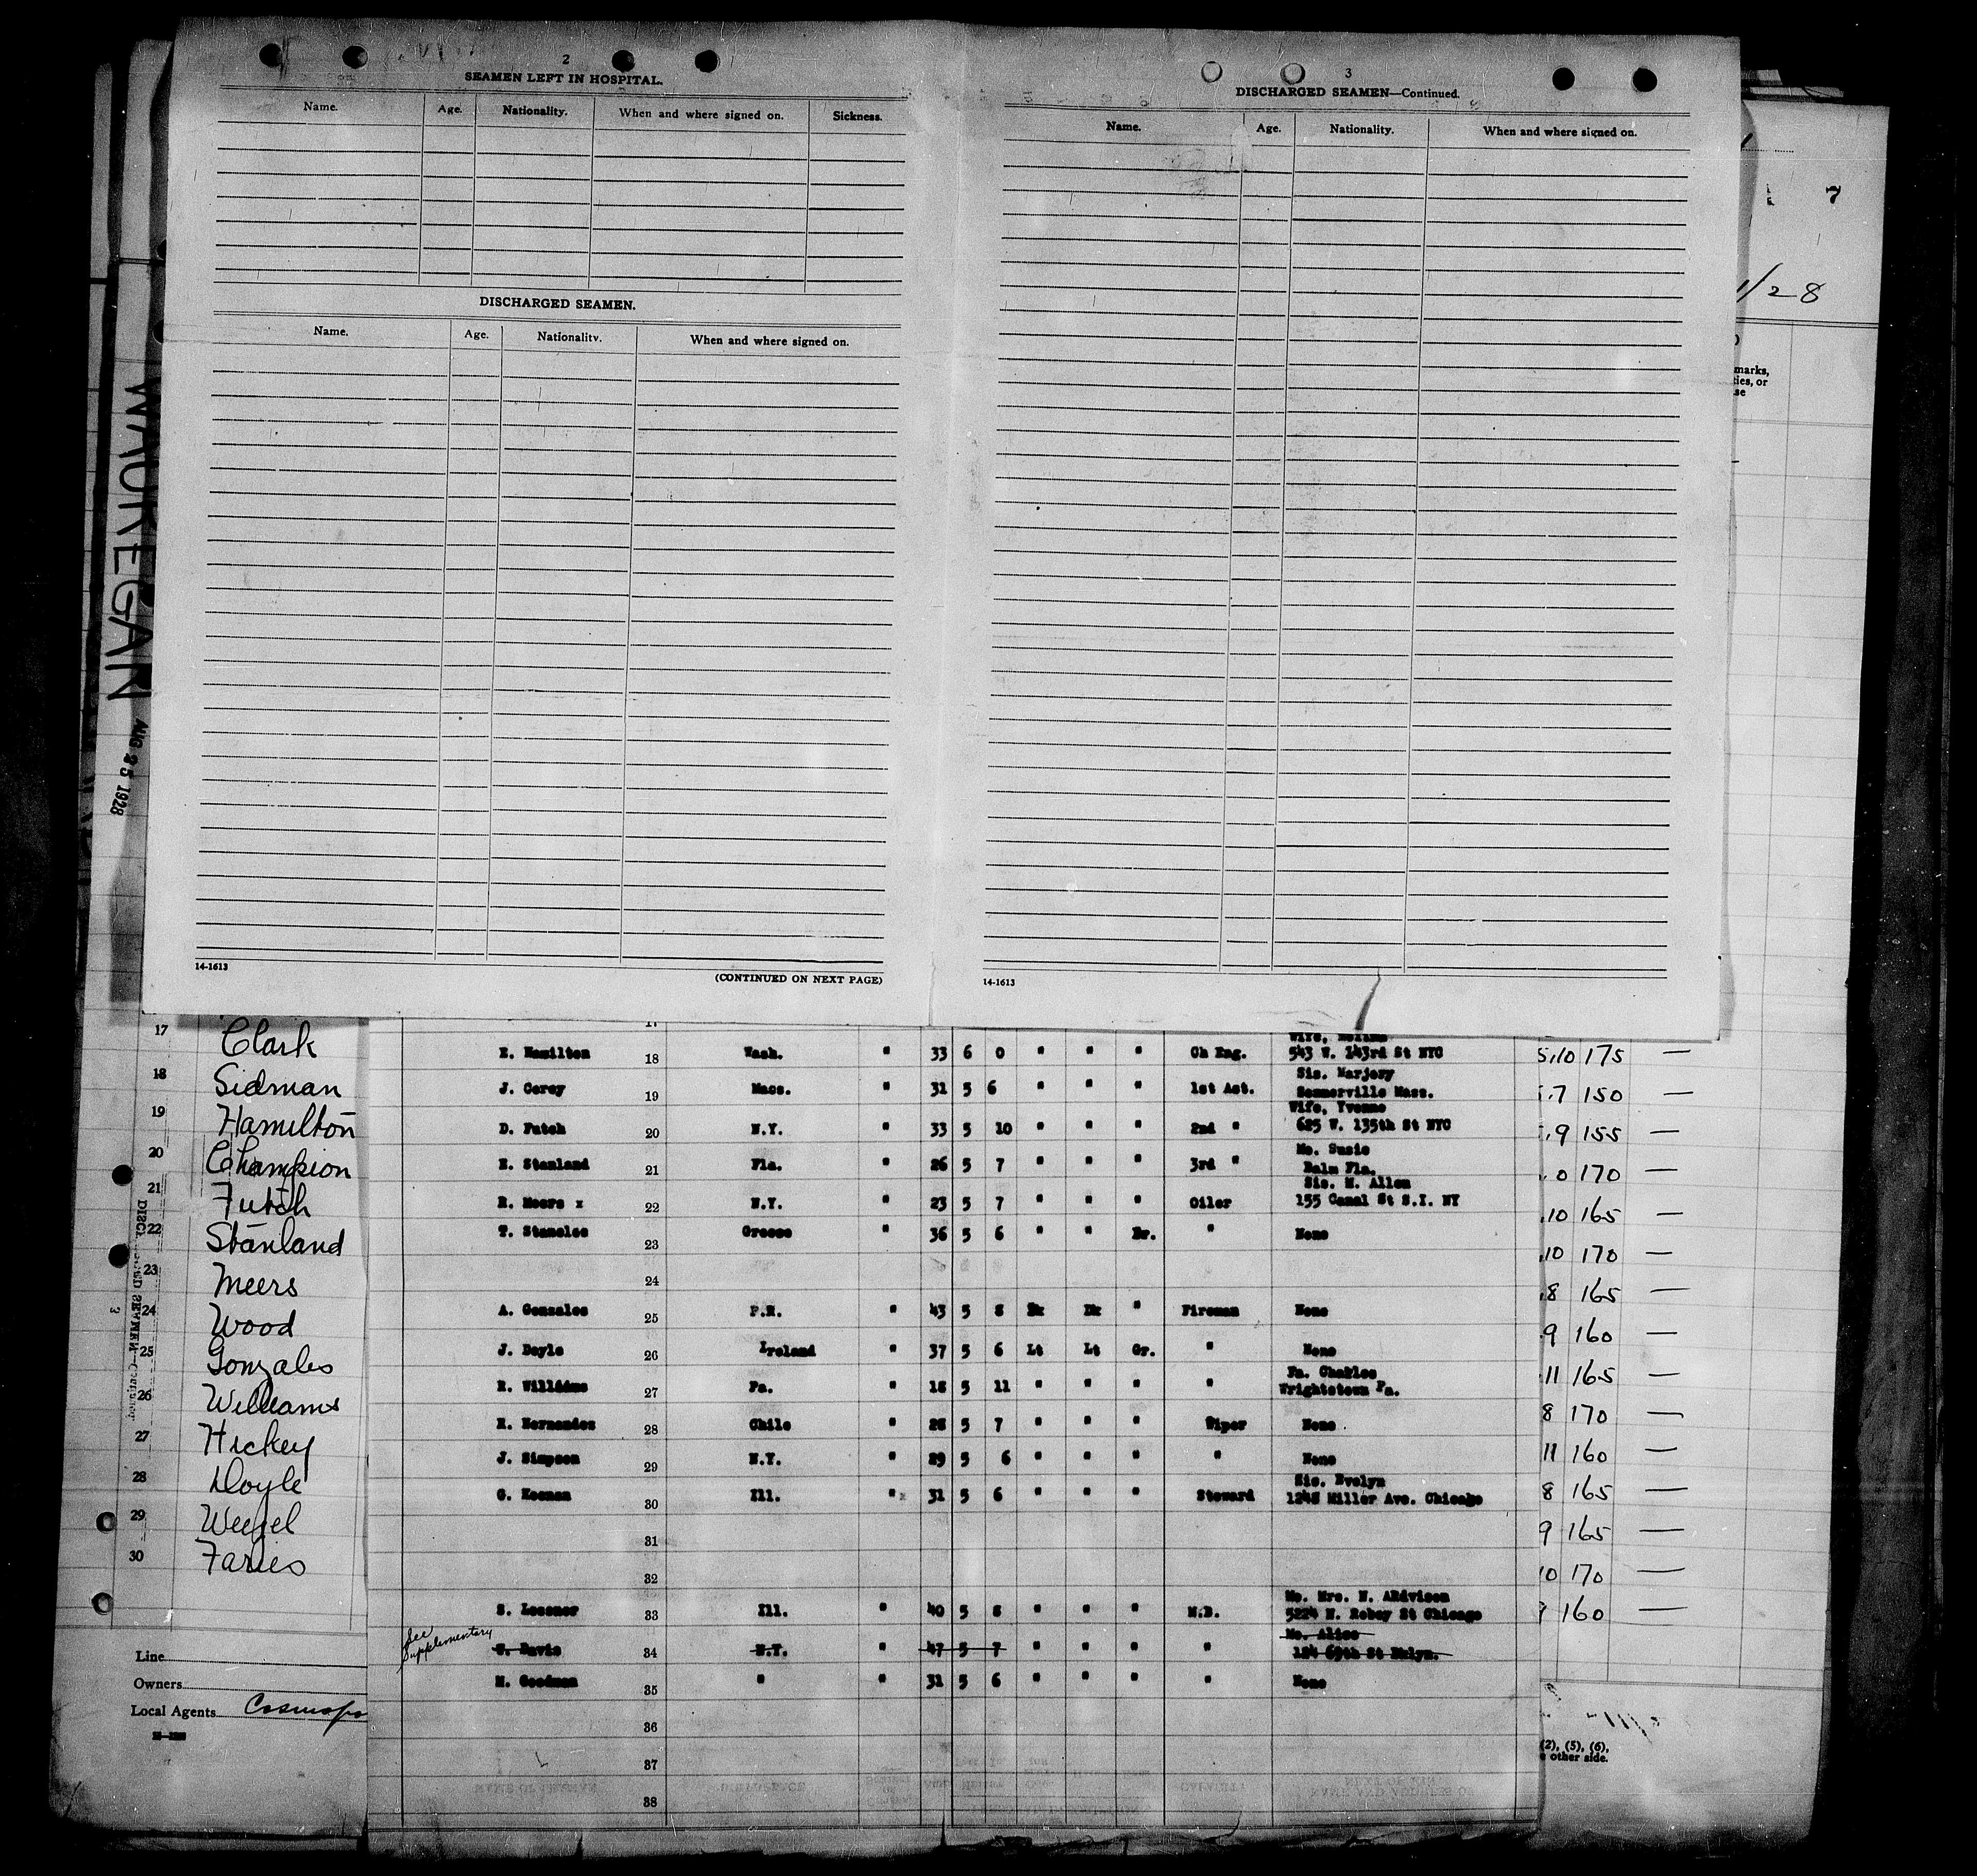 2
SEAMEN LEFT IN HOSPITAL.
Name. Age. Nationality. When and where signed on. Sickness.
DISCHARGED SEAMEN.
Name. Age. Nationality. When and where signed on.
14-1613
(CONTINUED ON NEXT PAGE)
3
DISCHARGED SEAMEN—Continued.
Name. Age. Nationality. When and where signed on.
14-1613
7
1/28
marks,
ties, or
se
WAUKEGAN
AUG 25 1928
3
17 Clark
18 Sidman
19 Hamilton
20 Champion
21 Futch
22 Stanland
23 Meers
24 Wood
25 Gonzales
26 Williams
27 Hickey
28 Doyle
29 Weigel
30 Faries
Line
Owners
Local Agents Cosmopo
17
E. Hamilton 18 Wash. " 33 6 0 " " " Ch Eng. 543 W. 143rd St NYC
Sis. Marjory
J. Corey 19 Mass. " 31 5 6 " " " 1st Ast. Sommerville Mass.
Wife, Yvonne
D. Futch 20 N.Y. " 33 5 10 " " " 2nd " 625 W. 135th St NYC
Mo. Susie
E. Stanland 21 Fla. " 26 5 7 " " " 3rd " Balm Fla.
Sis. M. Allen
R. Meers x 22 N.Y. " 23 5 7 " " " Oiler 155 Canal St S.I. NY
T. Stamelos 23 Greece " 36 5 6 " " Br. " None
24
A. Gonzales 25 P.R. " 43 5 8 Dk Dk " Fireman None
J. Doyle 26 Ireland " 37 5 6 Lt Lt Gr. " None
Fa. Charles
R. Williams 27 Pa. " 18 5 11 " " " " Wrightstown Pa.
R. Hernandez 28 Chile " 28 5 7 " " " Wiper None
J. Simpson 29 N.Y. " 29 5 6 " " " " None
Sis. Evelyn
G. Keenan 30 Ill. " 31 5 6 " " " Steward 1248 Miller Ave. Chicago
31
32
S. Lessner 33 Ill. " 40 5 8 " " " M.B. 5224 N. Robey St Chicago
See
Supplementary
Mo. Alice
Davis 34 N.Y. " 47 5 7 " " " " 124 69th St Bklyn.
M. Goodman 35 " " 31 5 6 " " " " None
36
37
38
5,10 175 —
7 150 —
9 155 —
0 170 —
10 165 —
10 170 —
8 165 —
9 160 —
11 165 —
8 170 —
11 160 —
8 165 —
9 165 —
10 170 —
160 —
(2), (5), (6),
other side.